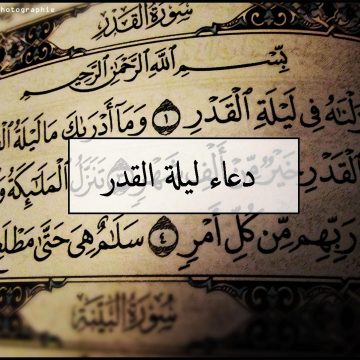 photographie
سُورَةُ الْقَدْرِ
بِسْمِ اللَّهِ الرَّحْمَٰنِ الرَّحِيمِ
فِي لَيْلَةِ الْقَدْرِ ١ وَمَا أَدْرَىٰكَ مَا لَيْلَةُ
الْقَدْرِ خَيْرٌ تَنَزَّلُ الْمَلَٰٓئِكَةُ
دعاء ليلة القدر
رَبِّهِم مِّن كُلِّ أَمْرٍ ٤ سَلَٰمٌ هِيَ حَتَّىٰ مَطْلَعِ
سُورَةُ الْبَيِّنَةِ